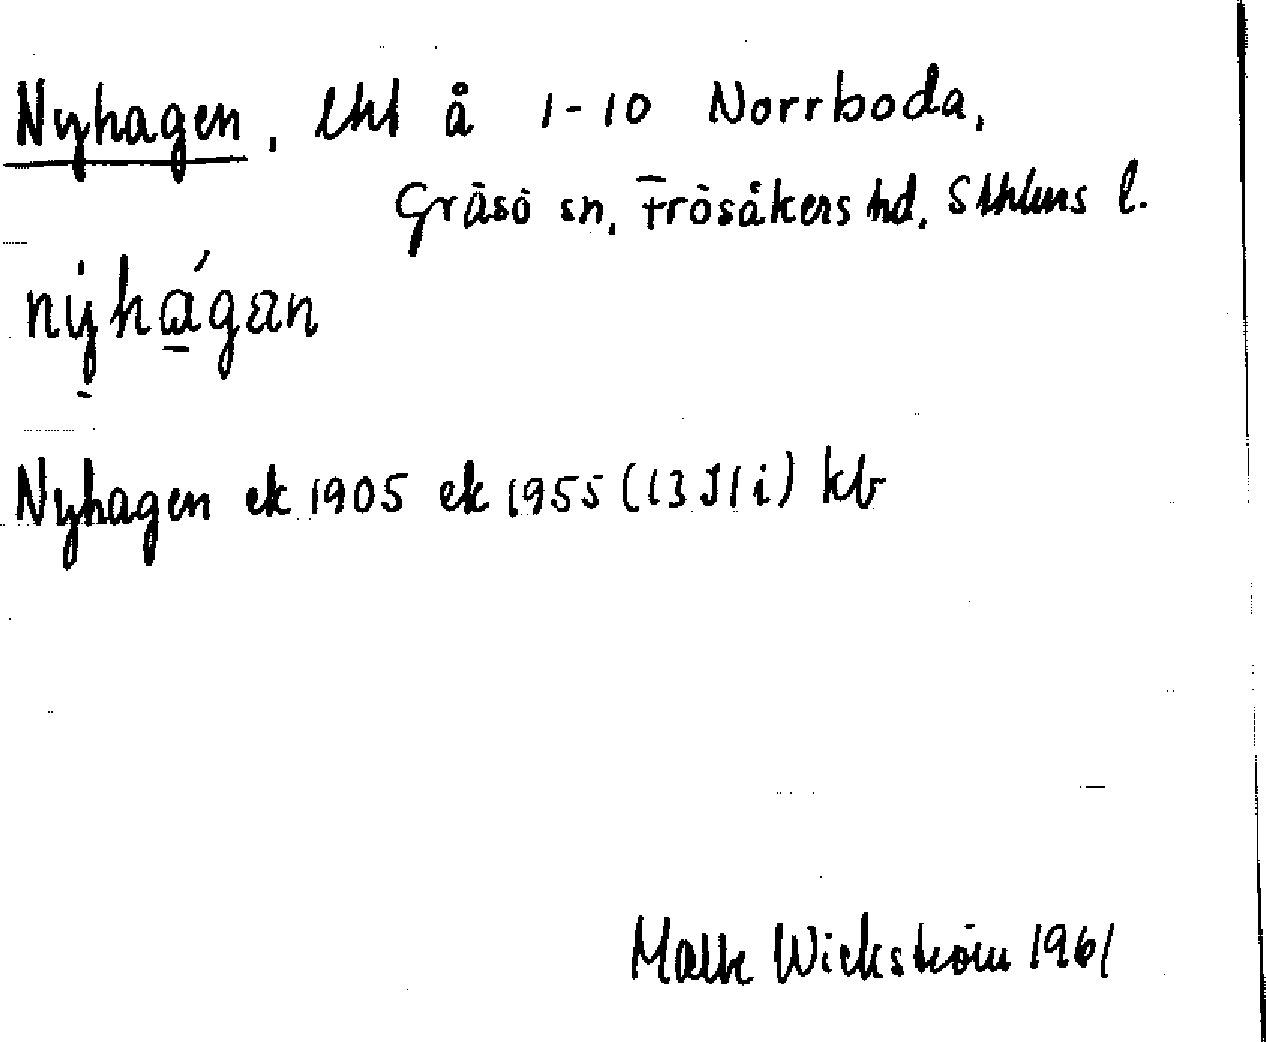 Nyhagen, lht å 1-10 Norrboda,
Gräsö sn, Frösåkers hd, Sthlms l.
nýhágan
Nyhagen ek 1905 ek 1955 (13 J 1 i) kb
Malte Wickström 1961